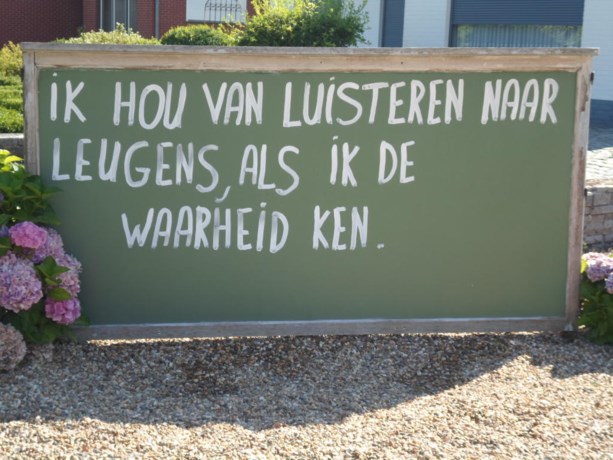 iK HOU VAN LUiSTEREN NAAR
LEUGENS, ALS iK DE
WAARHEiD KEN.